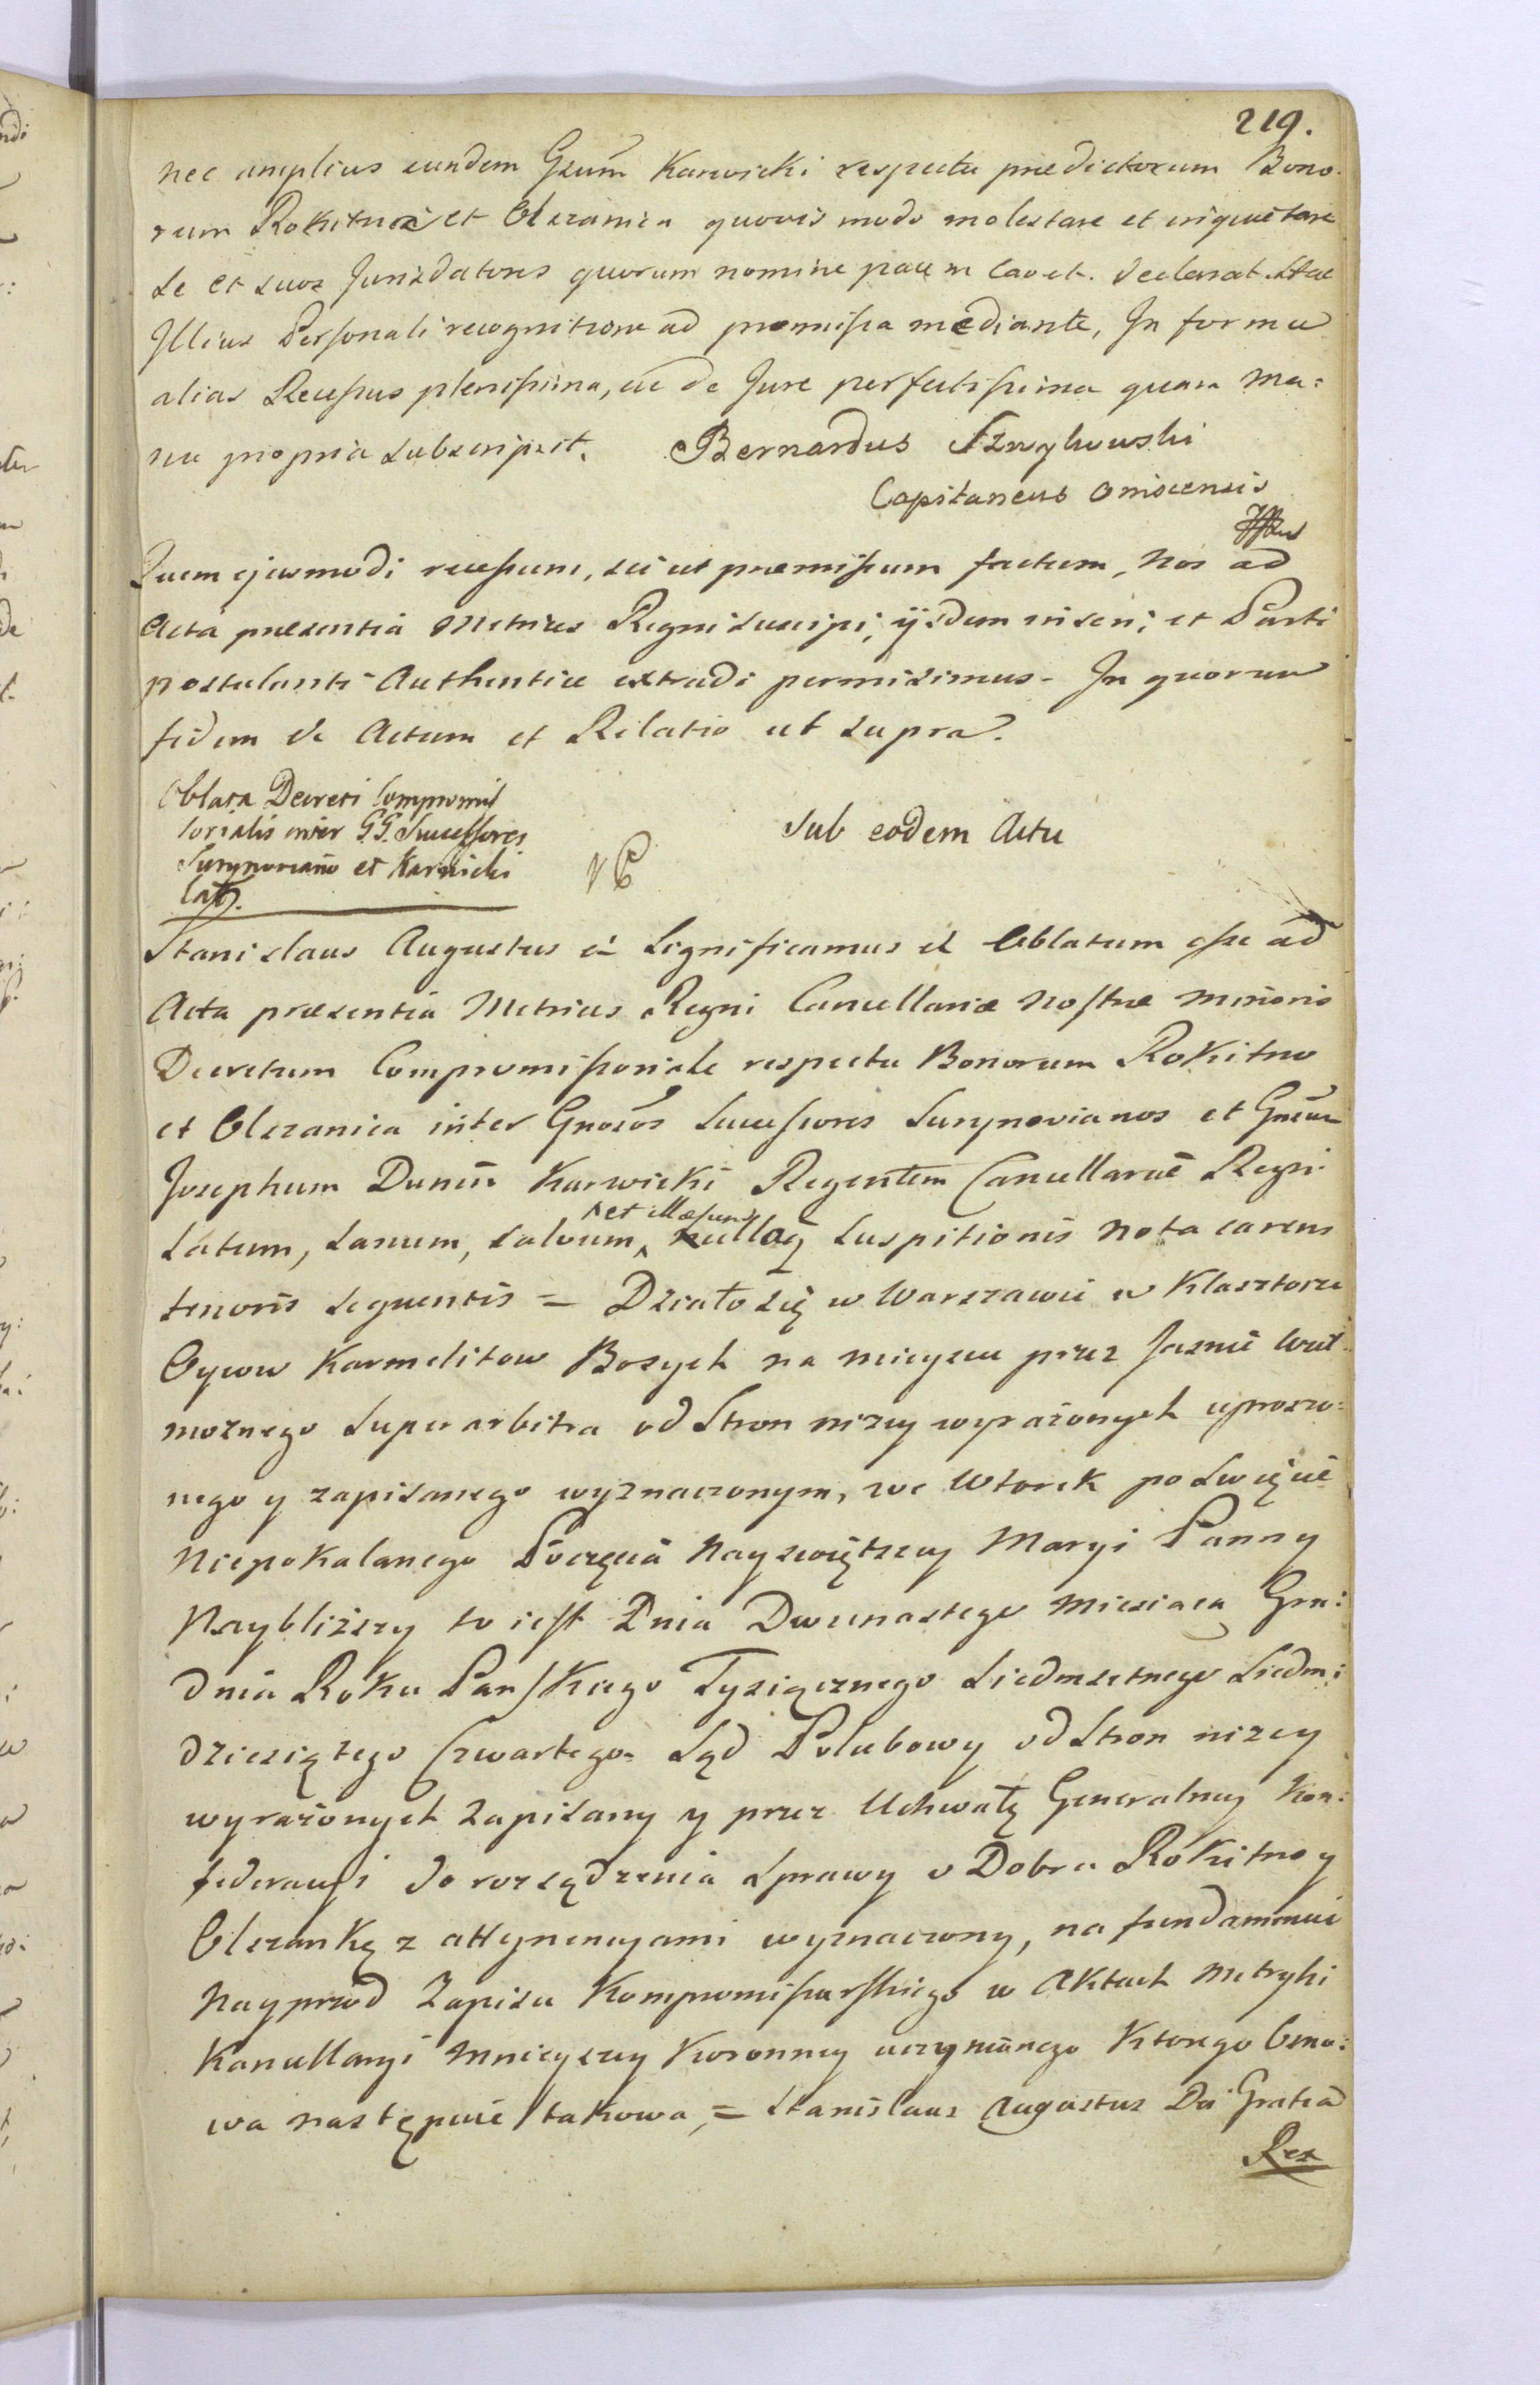 219.
nec amplius eundem Gsum Karwicki respectu praedictorum Bono-
rum Rokitna et Olszanica quovis modo molestare et inquietare
se et suos Jurisdatores quorum nomine pacem cavet. declarat Stae
Illius Personali recognitione ad praemissa mediante, In forma
alias Recessus plenissima, ac de Jure perfectissima quam Ma:
nu propria subscripsit. Bernardus
Capitaneus
Quem ejusmodi recessum, sic ut praemissum factum, Nos ad
Acta praesentia Metrices Regni suscipi, ijsdem inseri, et Parti
postulanti Authentice extradi permisimus. In quorum
fidem &c Actum et Relatio ut supra.
Oblata Decreti Compromis
sorialis inter G.G. Successores
Surynoviano et Karwicki
lati.
Sub eodem Actu
Stanislaus Augustus &c Significamus &c Oblatum esse ad
Acta praesentia Metrices Regni Cancellariae Nostrae minoris
Decretum Compromissoriale respectu Bonorum Rokitno
et Olszanica inter Gnosos Successores Surynovianos et Gnsum
Josephum Dunin Karwicki Regentem Cancellariae Regni
Latum, Sanum, salvum, et illaesum nullaq suspitionis nota carens
tenoris sequentis = Działo się w Warszawie w Klasztorze
Oycow Karmelitow Bosych na mieyscu przez Jasnie Wiel
moznego Superarbitra od Stron nizey wyrażonych uproszo:
nego y zapisanego wyznaczonym, we Wtorek po Swięcie
Niepokalanego Poczęcia Nayswiętszey Maryi Panny
Naybliższy to iest Dnia Dwunastego Miesiaca Gru:
dnia Roku Panskiego Tysiącznego Siedmsetnego Siedm:
dziesiątego Czwartego. Sąd Polubowy od Stron nizey
wyrażonych zapisany y przez Uchwałę Generalney Kon:
federacyi do rozsądzenia Sprawy o Dobra Rokitno y
Olszankę z attynencyami wyznaczony, na fundamencie
Nayprzod Zapisu Kompromissarskiego w Aktach Metryki
Kancellaryi Mnieyszey Koronney uczynionego Ktorego Osno:
wa następuie takowa, = Stanislaus Augustus Dei Gratia
Rex